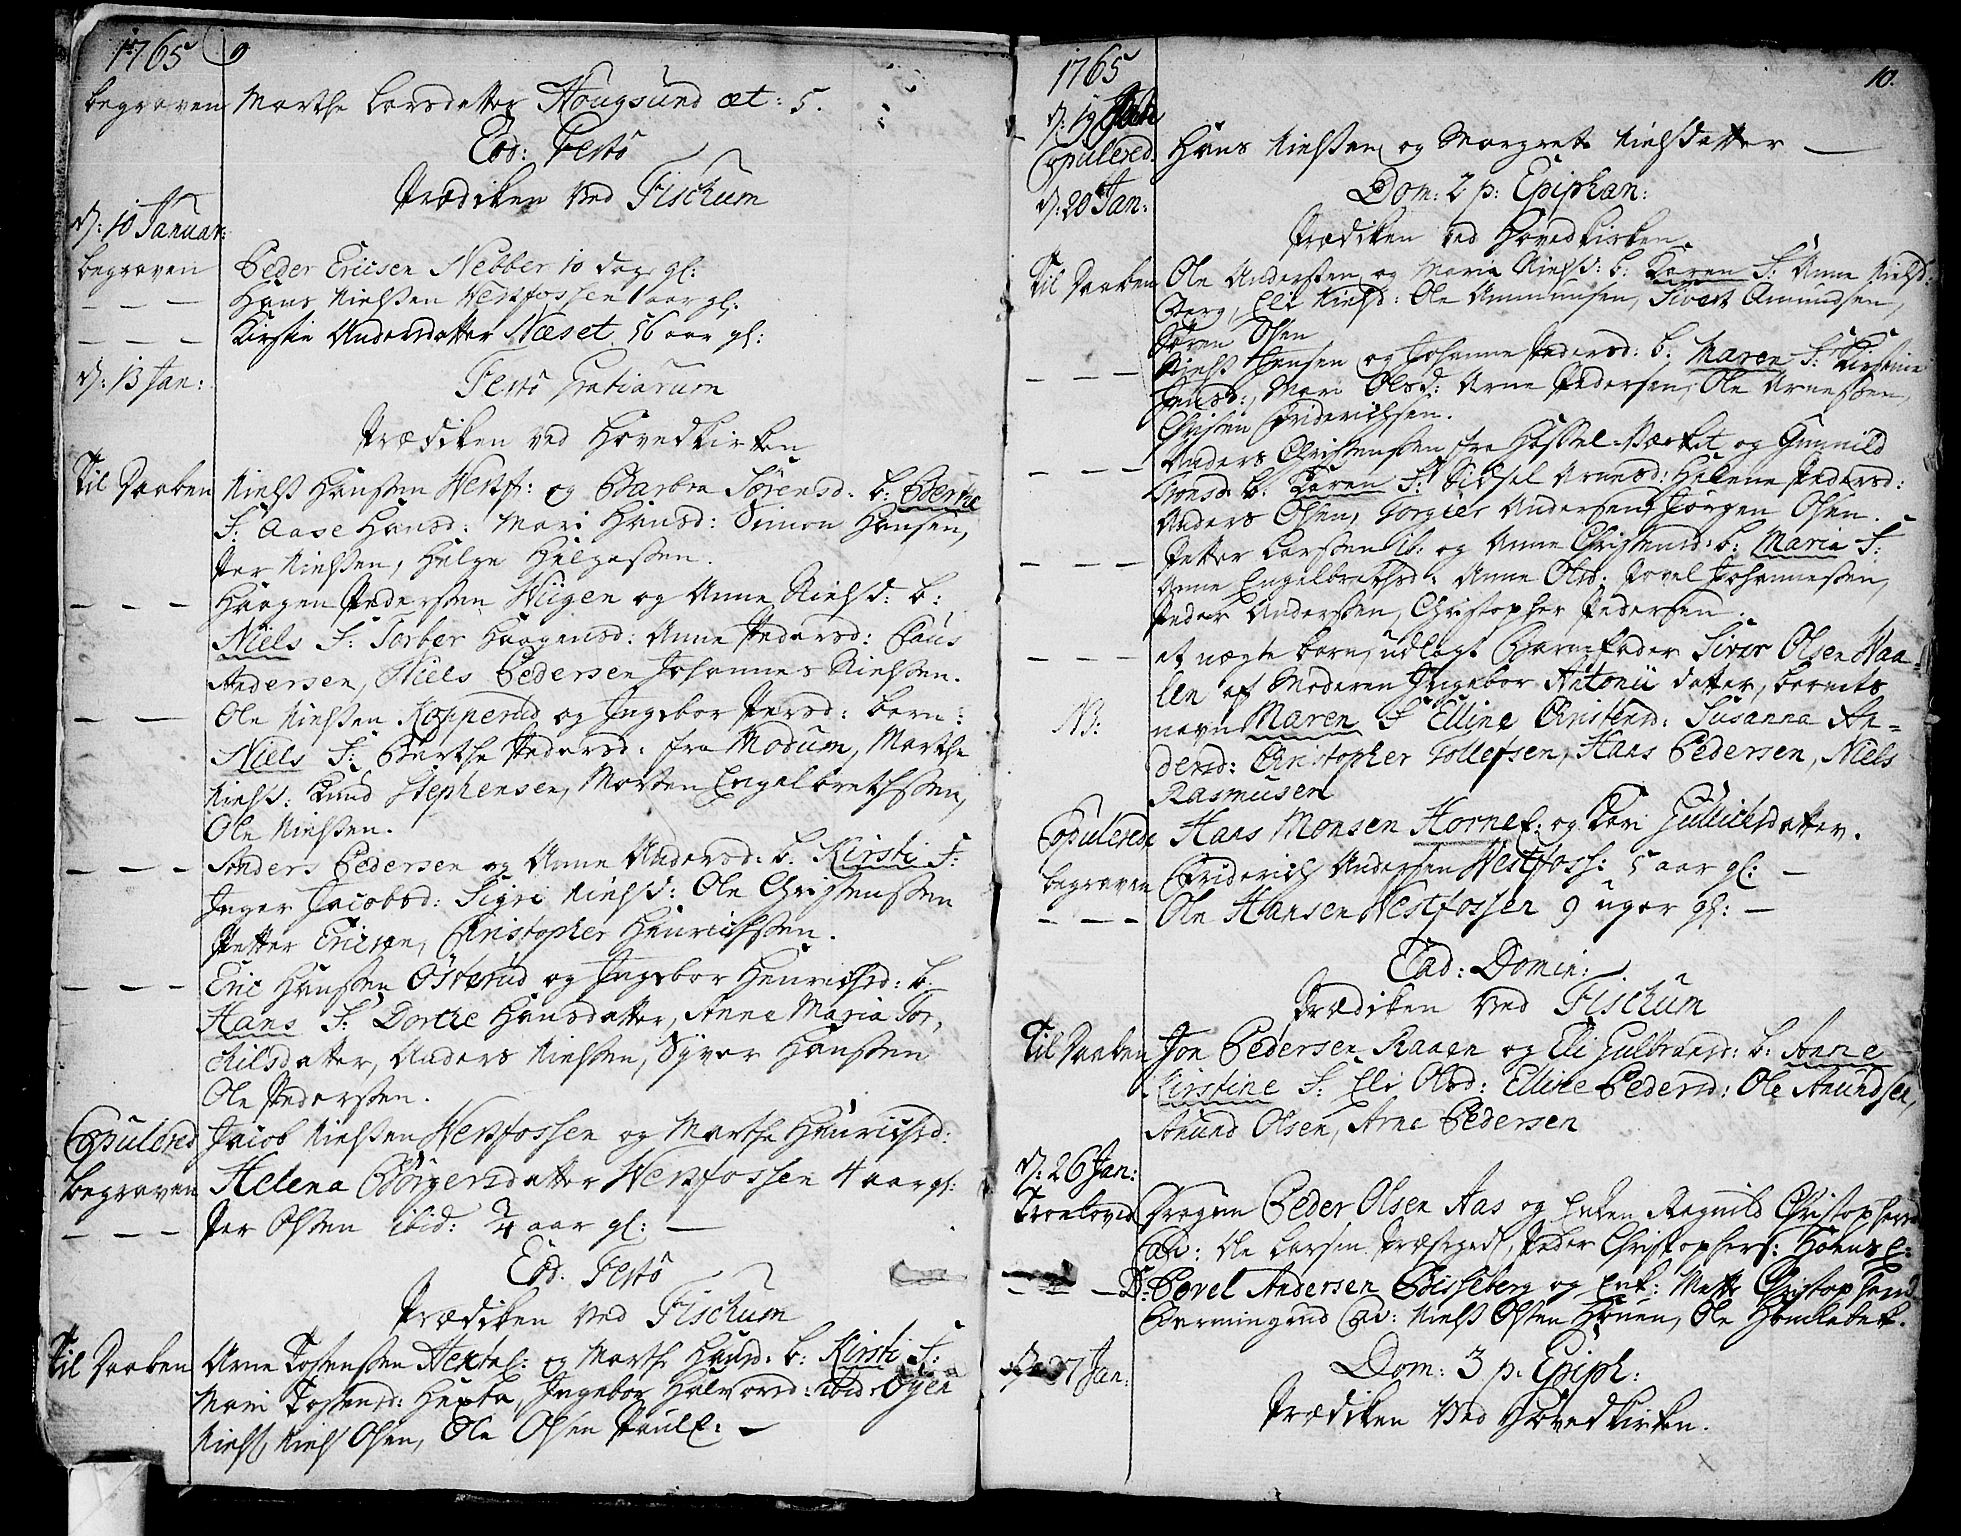 1765 9
begraven Marthe Larsdatter Hougsund æt: 5.
Eod: Festo
Prædiken ved Fischum
d: 10 Januar:
begraven Peder Ericsen Nebber 10 dage gl:
— — Hans Nielssen Vestfossen 1 aar gl:
— — — Kirstie Andersdatter Næset 56 aar gl:
d: 13 Jan: Festo Gratiarum
Prædiken ved Hovedkirken
Til Daaben Niels Hanssen Vestf: og Barbra Sörensd: b: Berthe
F: Aase Hansd: Mari Hansd: Simon Hansen,
Per Nielssen, Helge Helgessen.
— — — Haagen Pederssen Wiigen og Anne Nielsd: b:
Niels F: Torber Haagensd: Anne Pedersd: Claus
Andersen, Niels Pedersen Johannes Nielssen.
— — Ole Nielssen Kopperud og Ingebor Persd: barn:
Niels F: Berthe Pedersd: fra Modum, Marthe
Nielsd: Knud Stephensen, Morten Engelbrethssen,
Ole Nielssen.
— — — Anders Pedersen og Anne Andersd: b: Kirsti F:
Inger Jacobsd: Sigri Nielsd: Ole Christenssen
Petter Ericsen, Christopher Henrichssen.
— — — Eric Hanssen Österud og Ingebor Henrichsd: b:
Hans F: Dorthe Hansdatter, Anne Maria Tor-
kilsdatter, Anders Nielssen, Syver Hanssen
Ole Pederssen.
Copulered Jacob Nielssen Vestfossen og Marthe Henrichsd:
begraven Helena Börgersdatter Vestfossen 4 aar gl:
— — — Per Olssen ibid: 3/4 aar gl: —
Eod. Festo
Prædiken ved Fischum
Til Daaben Arne Tostenssen Hexta E: og Marthe Hansd: b: Kirsti F:
Mari Tostensd: Hexta, Ingebor Halvorsd: ibid: Ögen
Niels, Niels Olsen, Ole Olsen Paul E: —
1765 10.
d: 19 Jan
Copulered. Hans Nielssen og Margrete Nielsdatter —
d: 20 Jan: Dom: 2 p: Epiphan:
Prædiken ved Hovedkirken
Til Daaben Ole Anderssen og Maria Nielsd: b: Karen F: Anne Nielsd:
Berg, Eli Nielsd: Ole Ammunsen, Sivert Amundsen,
Sören Olsen
— — — Niels Jensen og Johanne Pedersd: b: Maren F: Kirstine
Hansd:, Mari Olsd: Arne Pedersen, Ole Arnessen,
Christen Friderichsen.
— — — Anders Christenssen fra Hassel-Værket og Gunnild
b: Karen F: Sidsel Arnesd: Helene Pedersd:
Anders Olsen, Torgier Andersen, Jörgen Olsen.
— — — Petter Larssen ib: og Anne Christensd: b: Maria F:
Anne Engelbrethsd: Anne Olsd: Povel Johannessen,
Peder Anderssen, Christopher Pedersen.
— — — et uægte barn, udlagt Barnefader Siver Olsen Haa-
len af Moderen Ingebor Antonii datter, barnets
NB: navn Maren F Elline Christensd: Susanna An-
dersd: Christopher Tollefsen, Hans Pedersen, Niels
Rasmusen
Copulered Hans Monsen Horne E: og Kari Gullichsdatter.
begraven Friderich Andersen Vestfoss: 5 aar gl: —
— — — Ole Hansen Vestfossen 9 uger gl: —
Ead: Domin:
Prædiken ved Fischum
Til Daaben Jon Pedersen Raaen og Eli Gulbrandsd: b: Anne
Kirstine F: Eli Olsd: Elline Pedersd: Ole Anundsen,
Anund Olsen, Arne Pedersen
d: 26 Jan:
Troelovede Dragun Peder Olsen Aas og Enken Ragnild Christophersd
Cav: Ole Larsen Præstegd, Peder Christophers: Hoens E:
— — Do: Povel Andersen Bisseberg og Enk: Mette Christophersd
Cav: Niels Olsen Houen, Ole Hamlebek.
d: 27 Jan: Dom: 3 p. Epiph:
Prædiken ved Hovedkirken.